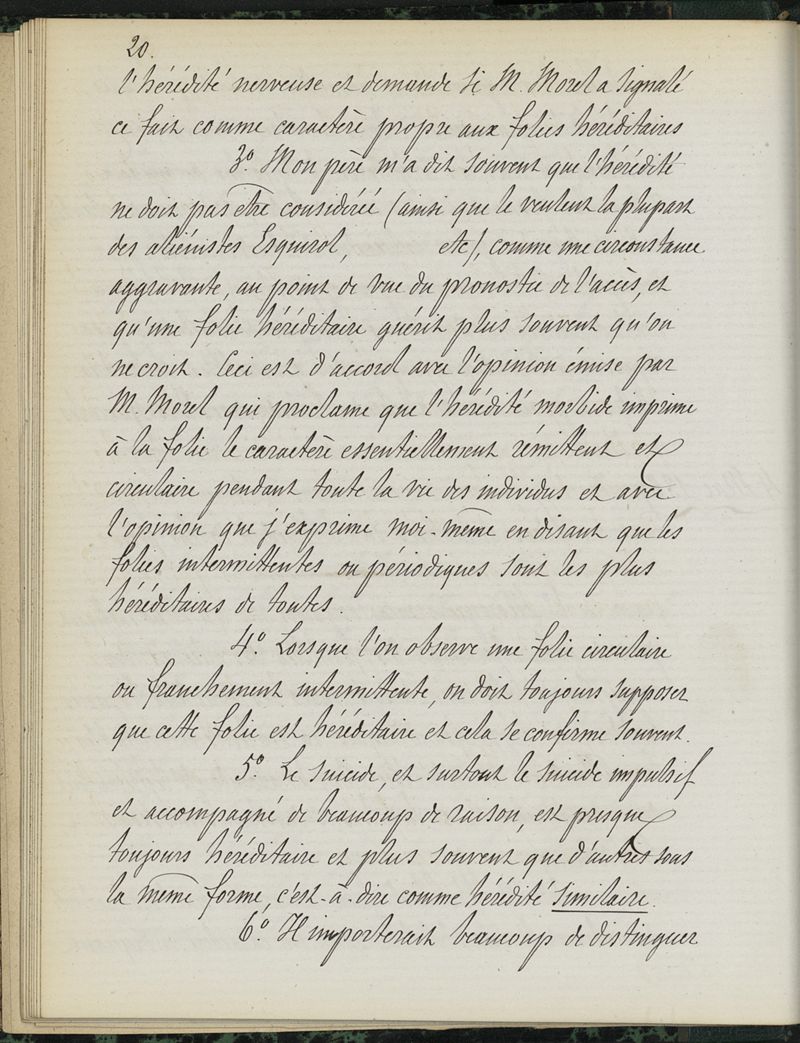 20.
l'hérédité nerveuse et demande si M. Morel a signalé
ce fait comme caractère propre aux folies héréditaires
3.º Mon père m'a dit souvent que l'hérédité
ne doit pas être considérée (ainsi que le veulent la plupart
des aliénistes Esquirol, etc), comme une circonstance
aggravante, au point de vue du pronostic de l'accès, et
qu'une folie héréditaire guérit plus souvent qu'on
ne croit. Ceci est d'accord avec l'opinion émise par
M. Morel qui proclame que l'hérédité morbide imprime
à la folie le caractère essentiellement rémittent et
circulaire pendant toute la vie des individus et avec
l'opinion que j'exprime moi-même en disant que les
folies intermittentes ou périodiques sont les plus
héréditaires de toutes.
4.º Lorsque l'on observe une folie circulaire
ou franchement intermittente, on doit toujours supposer
que cette folie est héréditaire et cela se confirme souvent.
5.º Le suicide, et surtout le suicide impulsif
et accompagné de beaucoup de raison, est presque
toujours héréditaire et plus souvent que d'autres sous
la même forme, c'est-à-dire comme hérédité similaire.
6.º Il importerait beaucoup de distinguer